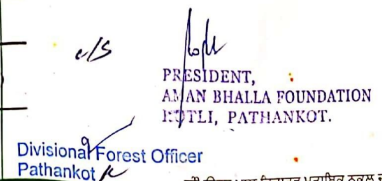 c/s
PRESIDENT,
AMAN BHALLA FOUNDATION
KOTLI, PATHANKOT.
Divisional Forest Officer
Pathankot